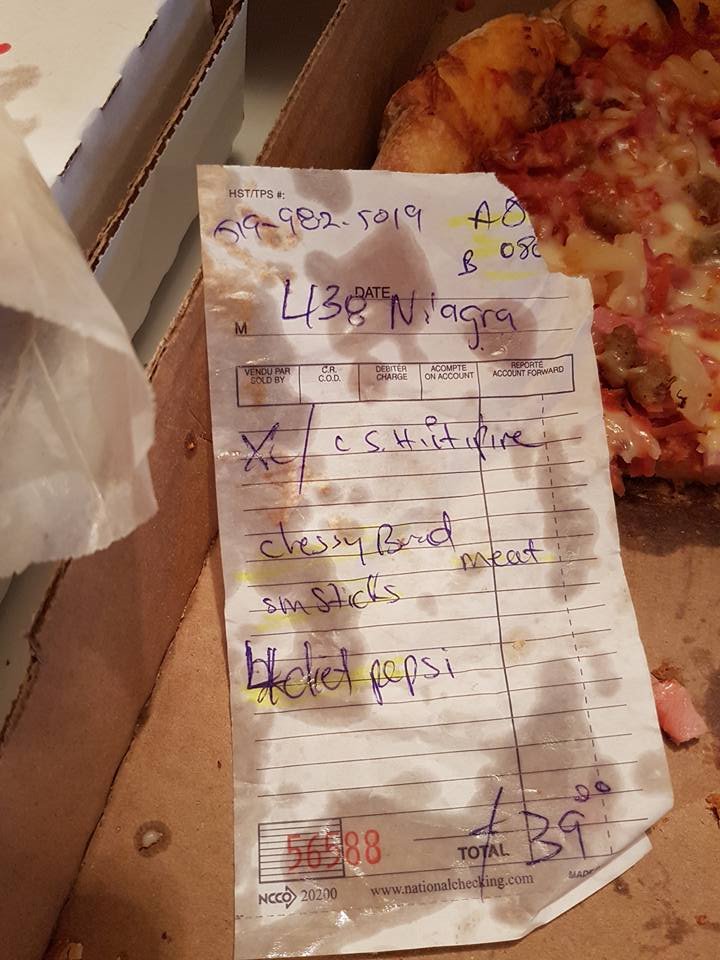 HST/TPS #:
519-982-5019 A8
B 080
DATE
M 438 Niagra
VENDU PAR SOLD BY
C.R. C.O.D.
DÉBITER CHARGE
ACOMPTE ON ACCOUNT
REPORTÉ ACCOUNT FORWARD
C S.
chessy Bread
meat
sm sticks
diet pepsi
56588
TOTAL 39.00
NCCO 20200 www.nationalchecking.com
MADE